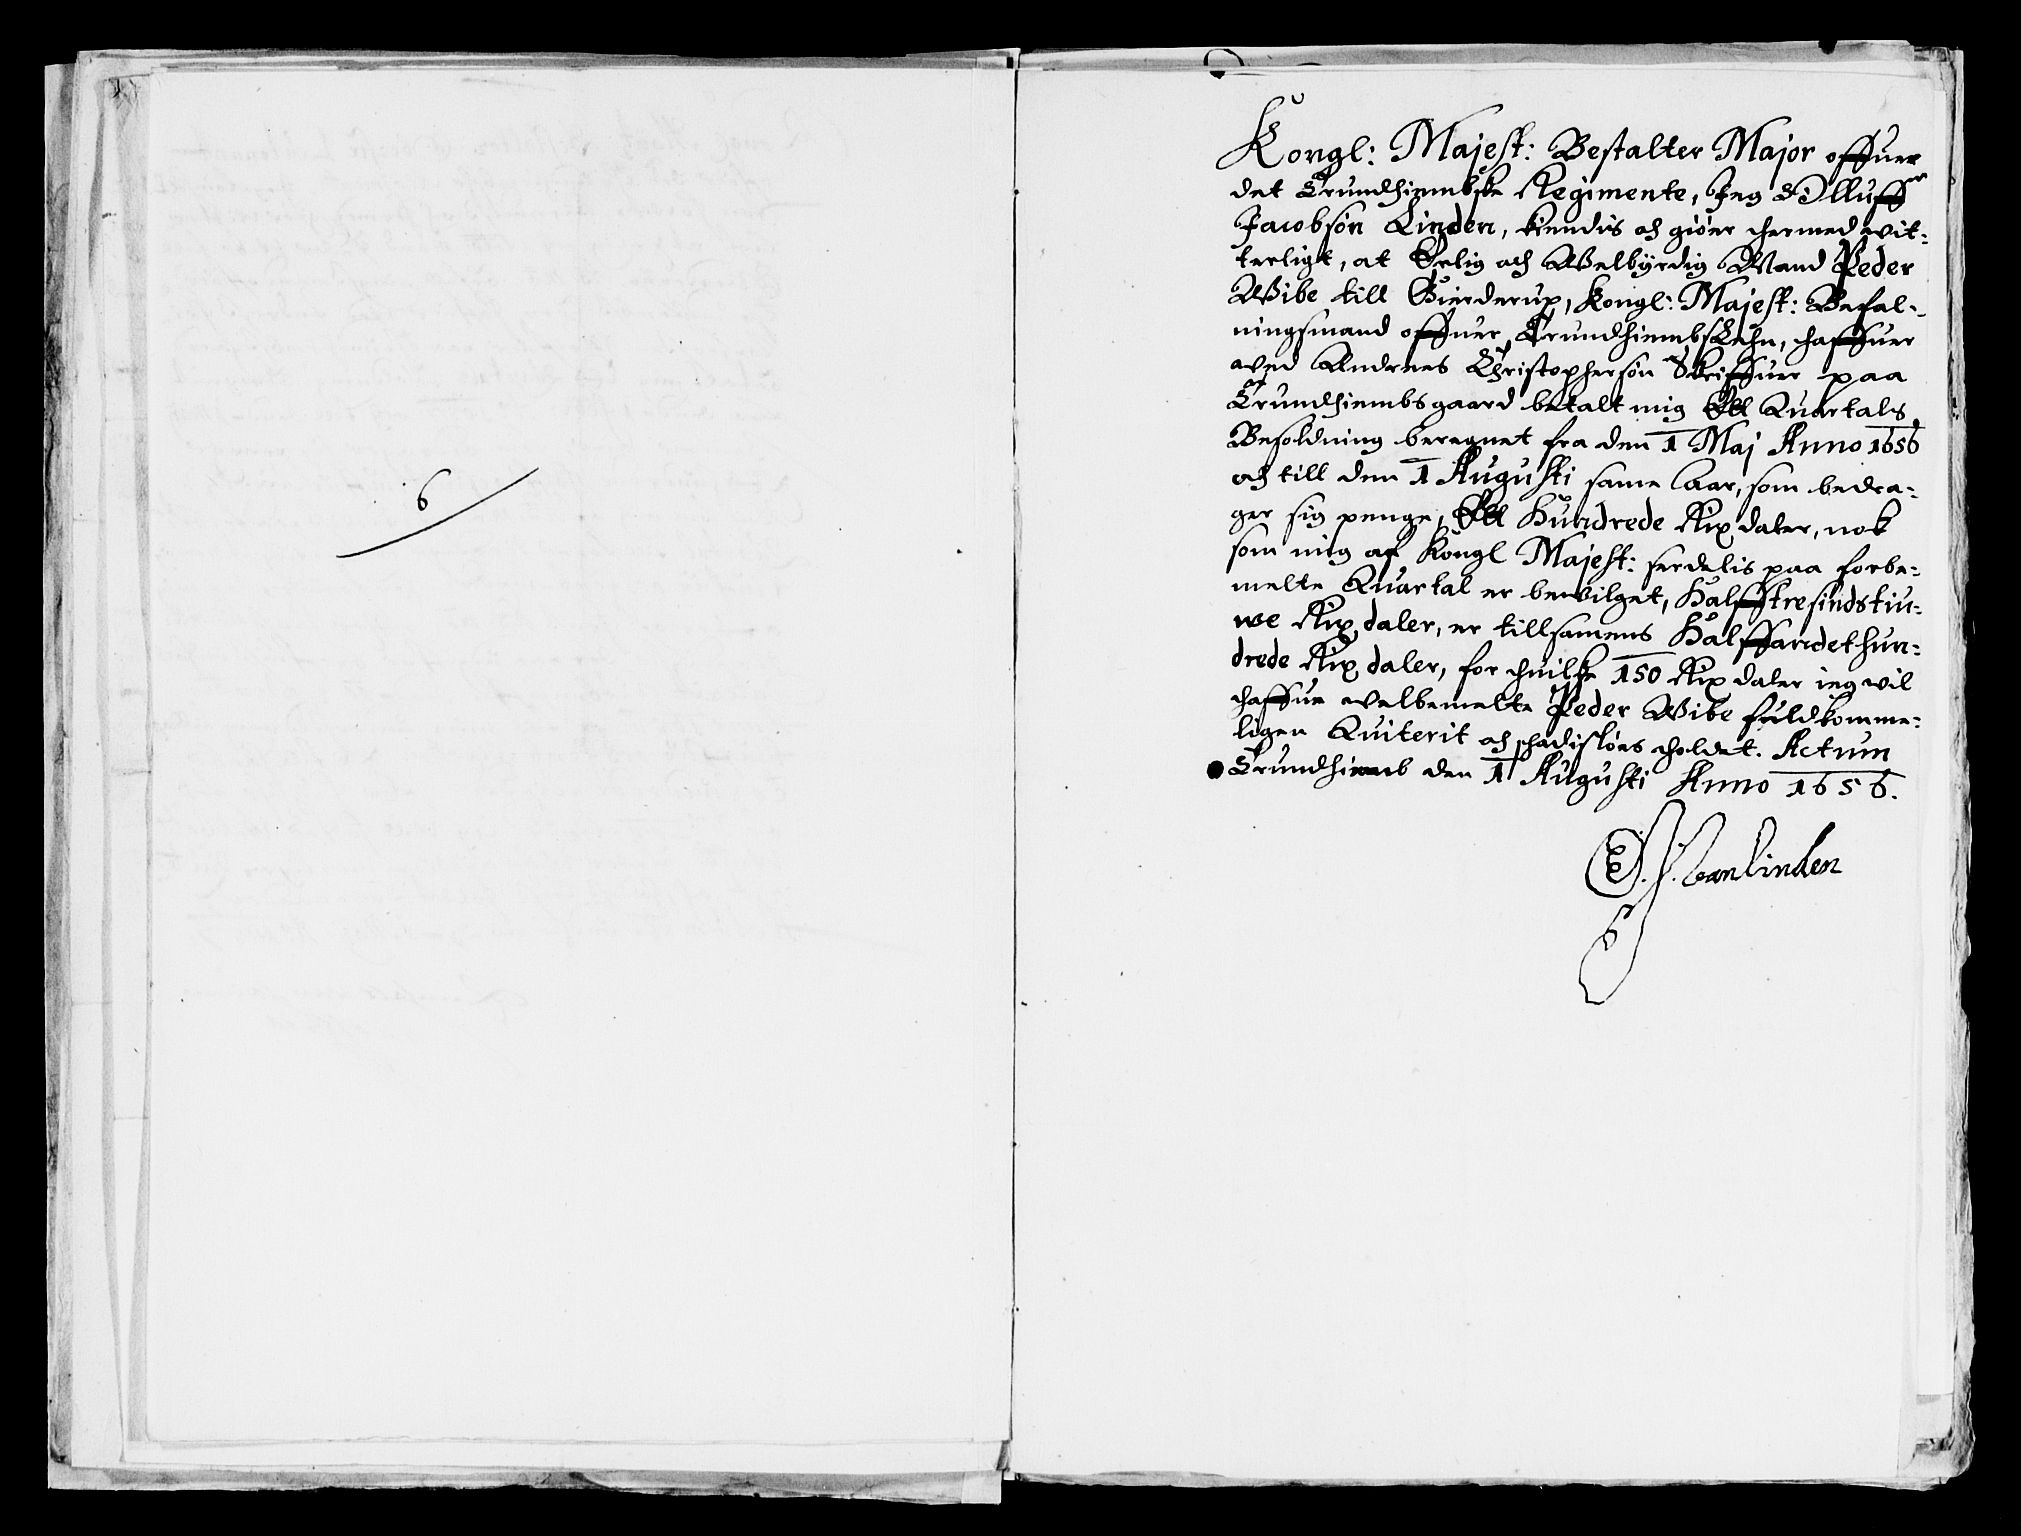 6
Kongl: Majest: Bestalter Major offuer
det Trundhiembske Regimente, Jeg Olluff
Jacobsön Linden, kiendis och giöer hermed vit-
terligt, at Erlig och Welbÿrdig Mand Peder
Wibe till Gierderup, Kongl: Majest: Befal-
ningsmand offuer Trundhiembs Lehn, haffuer
ved Andrees Christophersön Skriffuer paa
Trundhiembsgaard betalt mig Ett Quartals
Besoldning beregnet fra den 1 Maj Anno 1656
och till den 1 Augusti same Aar, som bedra-
ger sig penge, Ett Hundrede Rix daler, nok
som mig af Kongl Majest: serdelis paa forbe-
melte Quartal er bevilget, Halfftresindstiu-
we Rix daler, er tillsamens Halffandethun-
drede Rix daler, for huilke 150 Rix daler ieg vil
haffue velbemelte Peder Wibe fuldkomme-
ligen Quiterit och schadislöes holdet. Actum
Trundhiemb den 1 Augusti Anno 1656.
O. J. van Linden